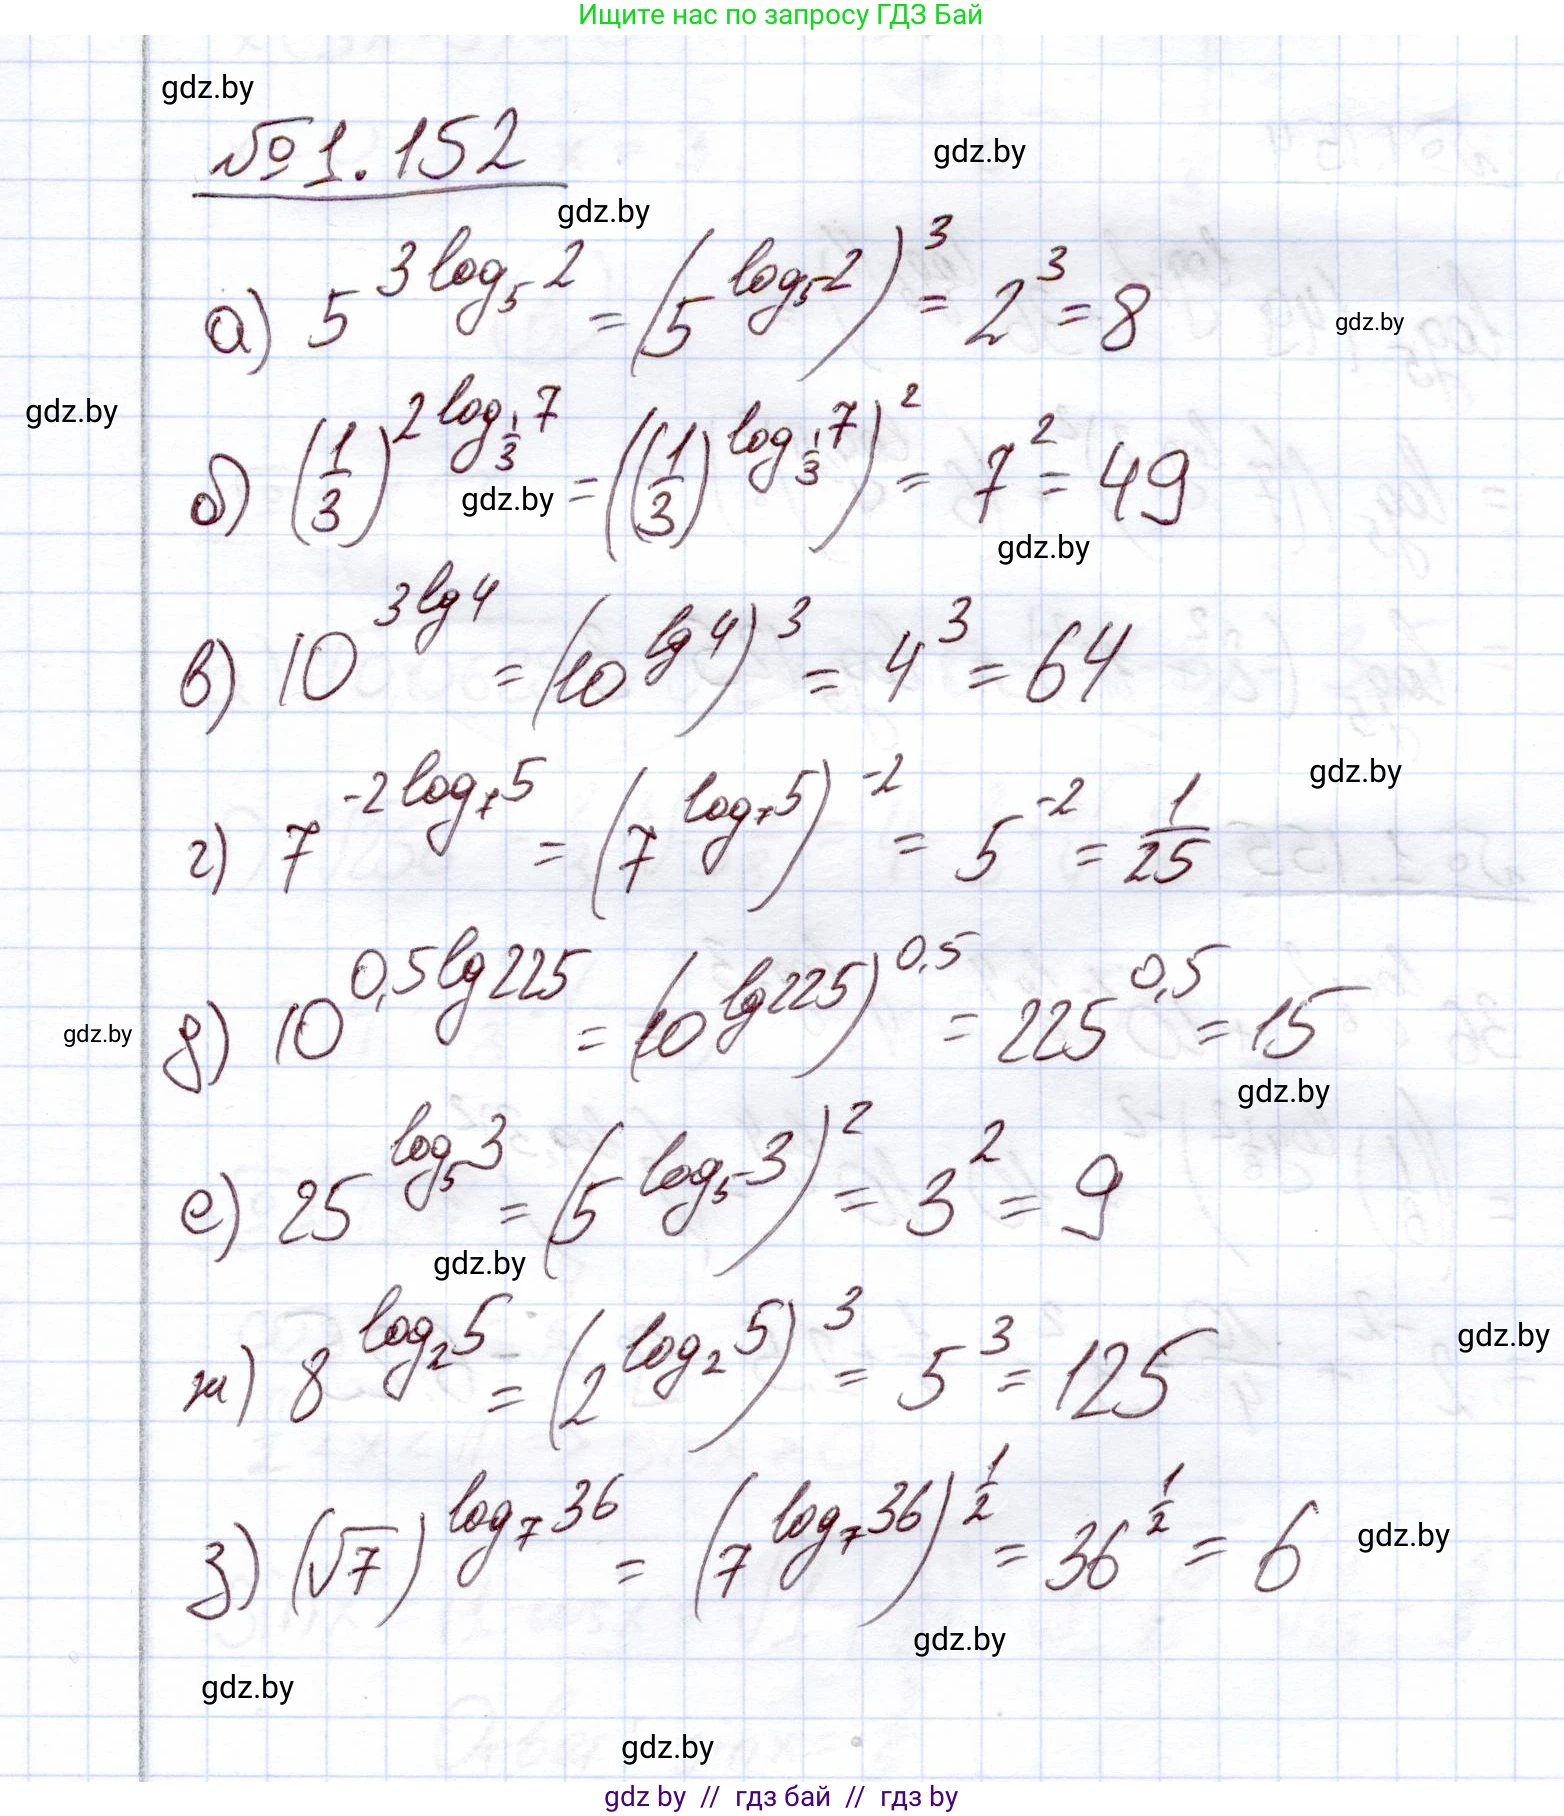 Ищите нас по запросу ГДЗ Бай
gdz.by
№ 1.152
gdz.by
gdz.by
а) 5^{3 log_5 2} = (5^{log_5 2})^3 = 2^3 = 8
gdz.by
gdz.by
б) (1/3)^{2 log_{1/3} 7} = ((1/3)^{log_{1/3} 7})^2 = 7^2 = 49
gdz.by
gdz.by
в) 10^{3 lg 4} = (10^{lg 4})^3 = 4^3 = 64
gdz.by
г) 7^{-2 log_7 5} = (7^{log_7 5})^{-2} = 5^{-2} = 1/25
д) 10^{0,5 lg 225} = (10^{lg 225})^{0,5} = 225^{0,5} = 15
gdz.by
gdz.by
е) 25^{log_5 3} = (5^{log_5 3})^2 = 3^2 = 9
gdz.by
ж) 8^{log_2 5} = (2^{log_2 5})^3 = 5^3 = 125
gdz.by
з) (√7)^{log_7 36} = (7^{log_7 36})^{1/2} = 36^{1/2} = 6
gdz.by
gdz.by
gdz.by
gdz.by
gdz by // гдз бай // gdz by